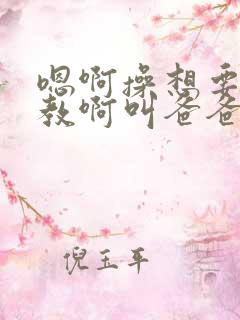 嗯啊操想要
教啊叫爸爸
倪玉平